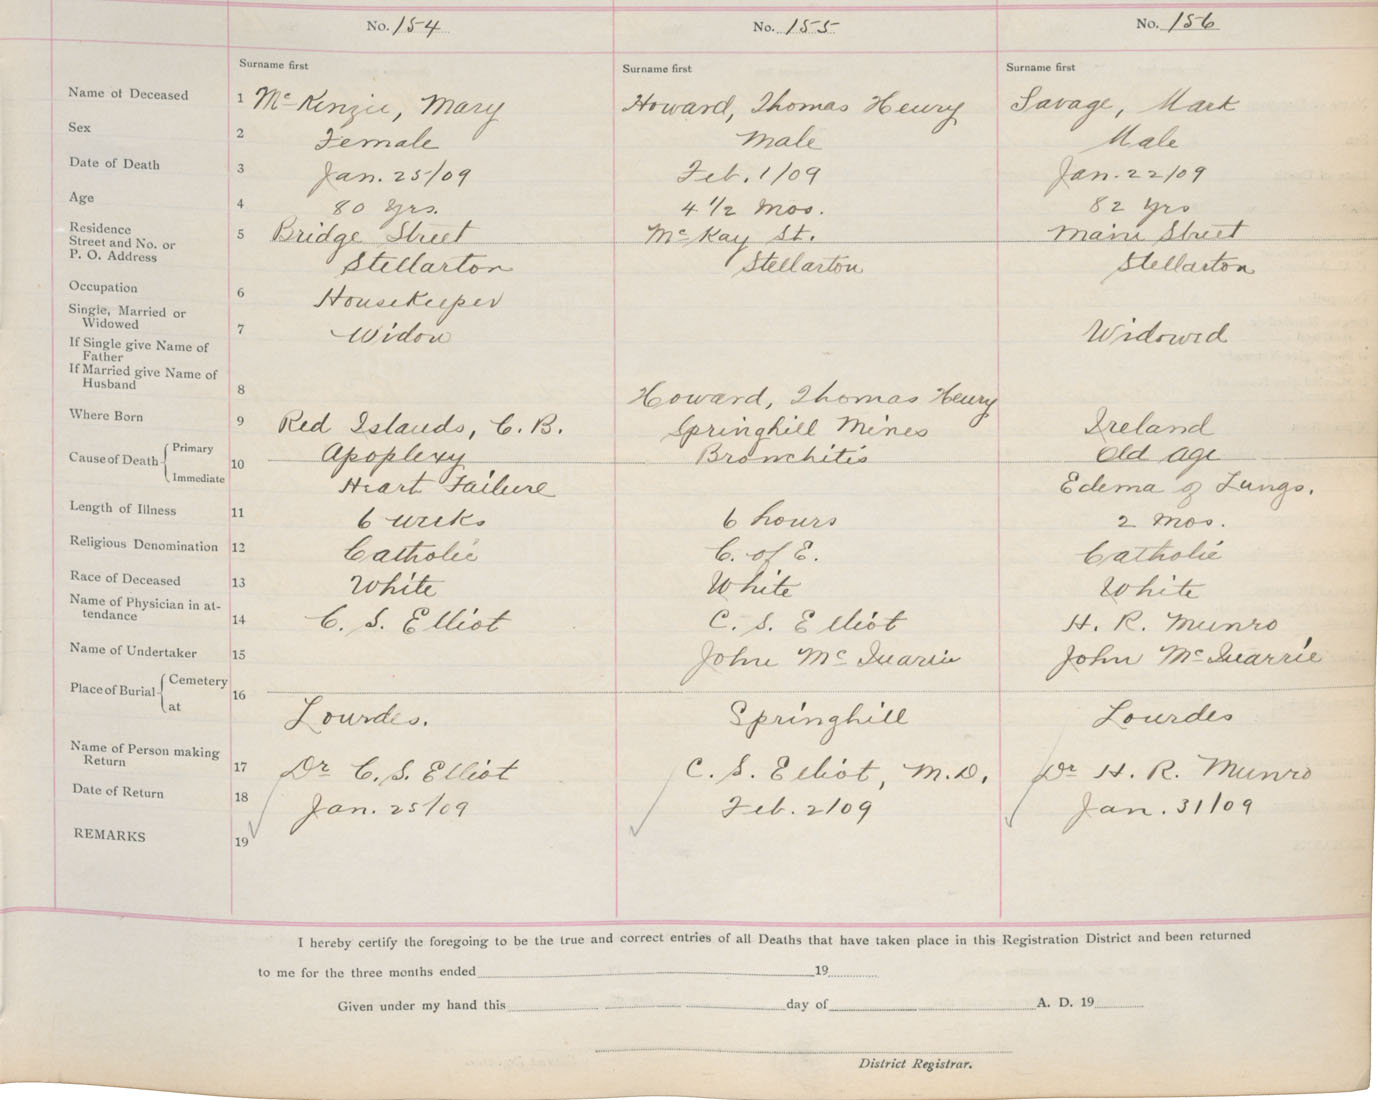 No. 154 No. 155 No. 156
Surname first Surname first Surname first
Name of Deceased 1 McKenzie, Mary Howard, Thomas Henry Savage, Mark
Sex 2 Female Male Male
Date of Death 3 Jan. 25/09 Feb. 1/09 Jan. 22/09
Age 4 80 Yrs. 4 1/2 Mos. 82 Yrs
Residence
Street and No. or 5 Bridge Street McKay St. Main Street
P. O. Address Stellarton Stellarton Stellarton
Occupation 6 Housekeeper
Single, Married or
Widowed 7 Widow Widowed
If Single give Name of
Father
If Married give Name of
Husband 8 Howard, Thomas Henry
Where Born 9 Red Islands, C. B. Springhill Mines Ireland
Cause of Death Primary 10 Apoplexy Bronchitis Old Age
Immediate Heart Failure Edema of Lungs.
Length of Illness 11 6 weeks 6 hours 2 mos.
Religious Denomination 12 Catholic C. of E. Catholic
Race of Deceased 13 White White White
Name of Physician in at-
tendance 14 C. S. Elliot C. S. Elliot H. R. Munro
Name of Undertaker 15 John McQuarie John McQuarrie
Place of Burial Cemetery 16
at Lourdes. Springhill Lourdes
Name of Person making
Return 17 Dr C. S. Elliot C. S. Elliot, M.D. Dr H. R. Munro
Date of Return 18 Jan. 25/09 Feb. 2/09 Jan. 31/09
REMARKS 19
I hereby certify the foregoing to be the true and correct entries of all Deaths that have taken place in this Registration District and been returned
to me for the three months ended 19
Given under my hand this day of A. D. 19
District Registrar.